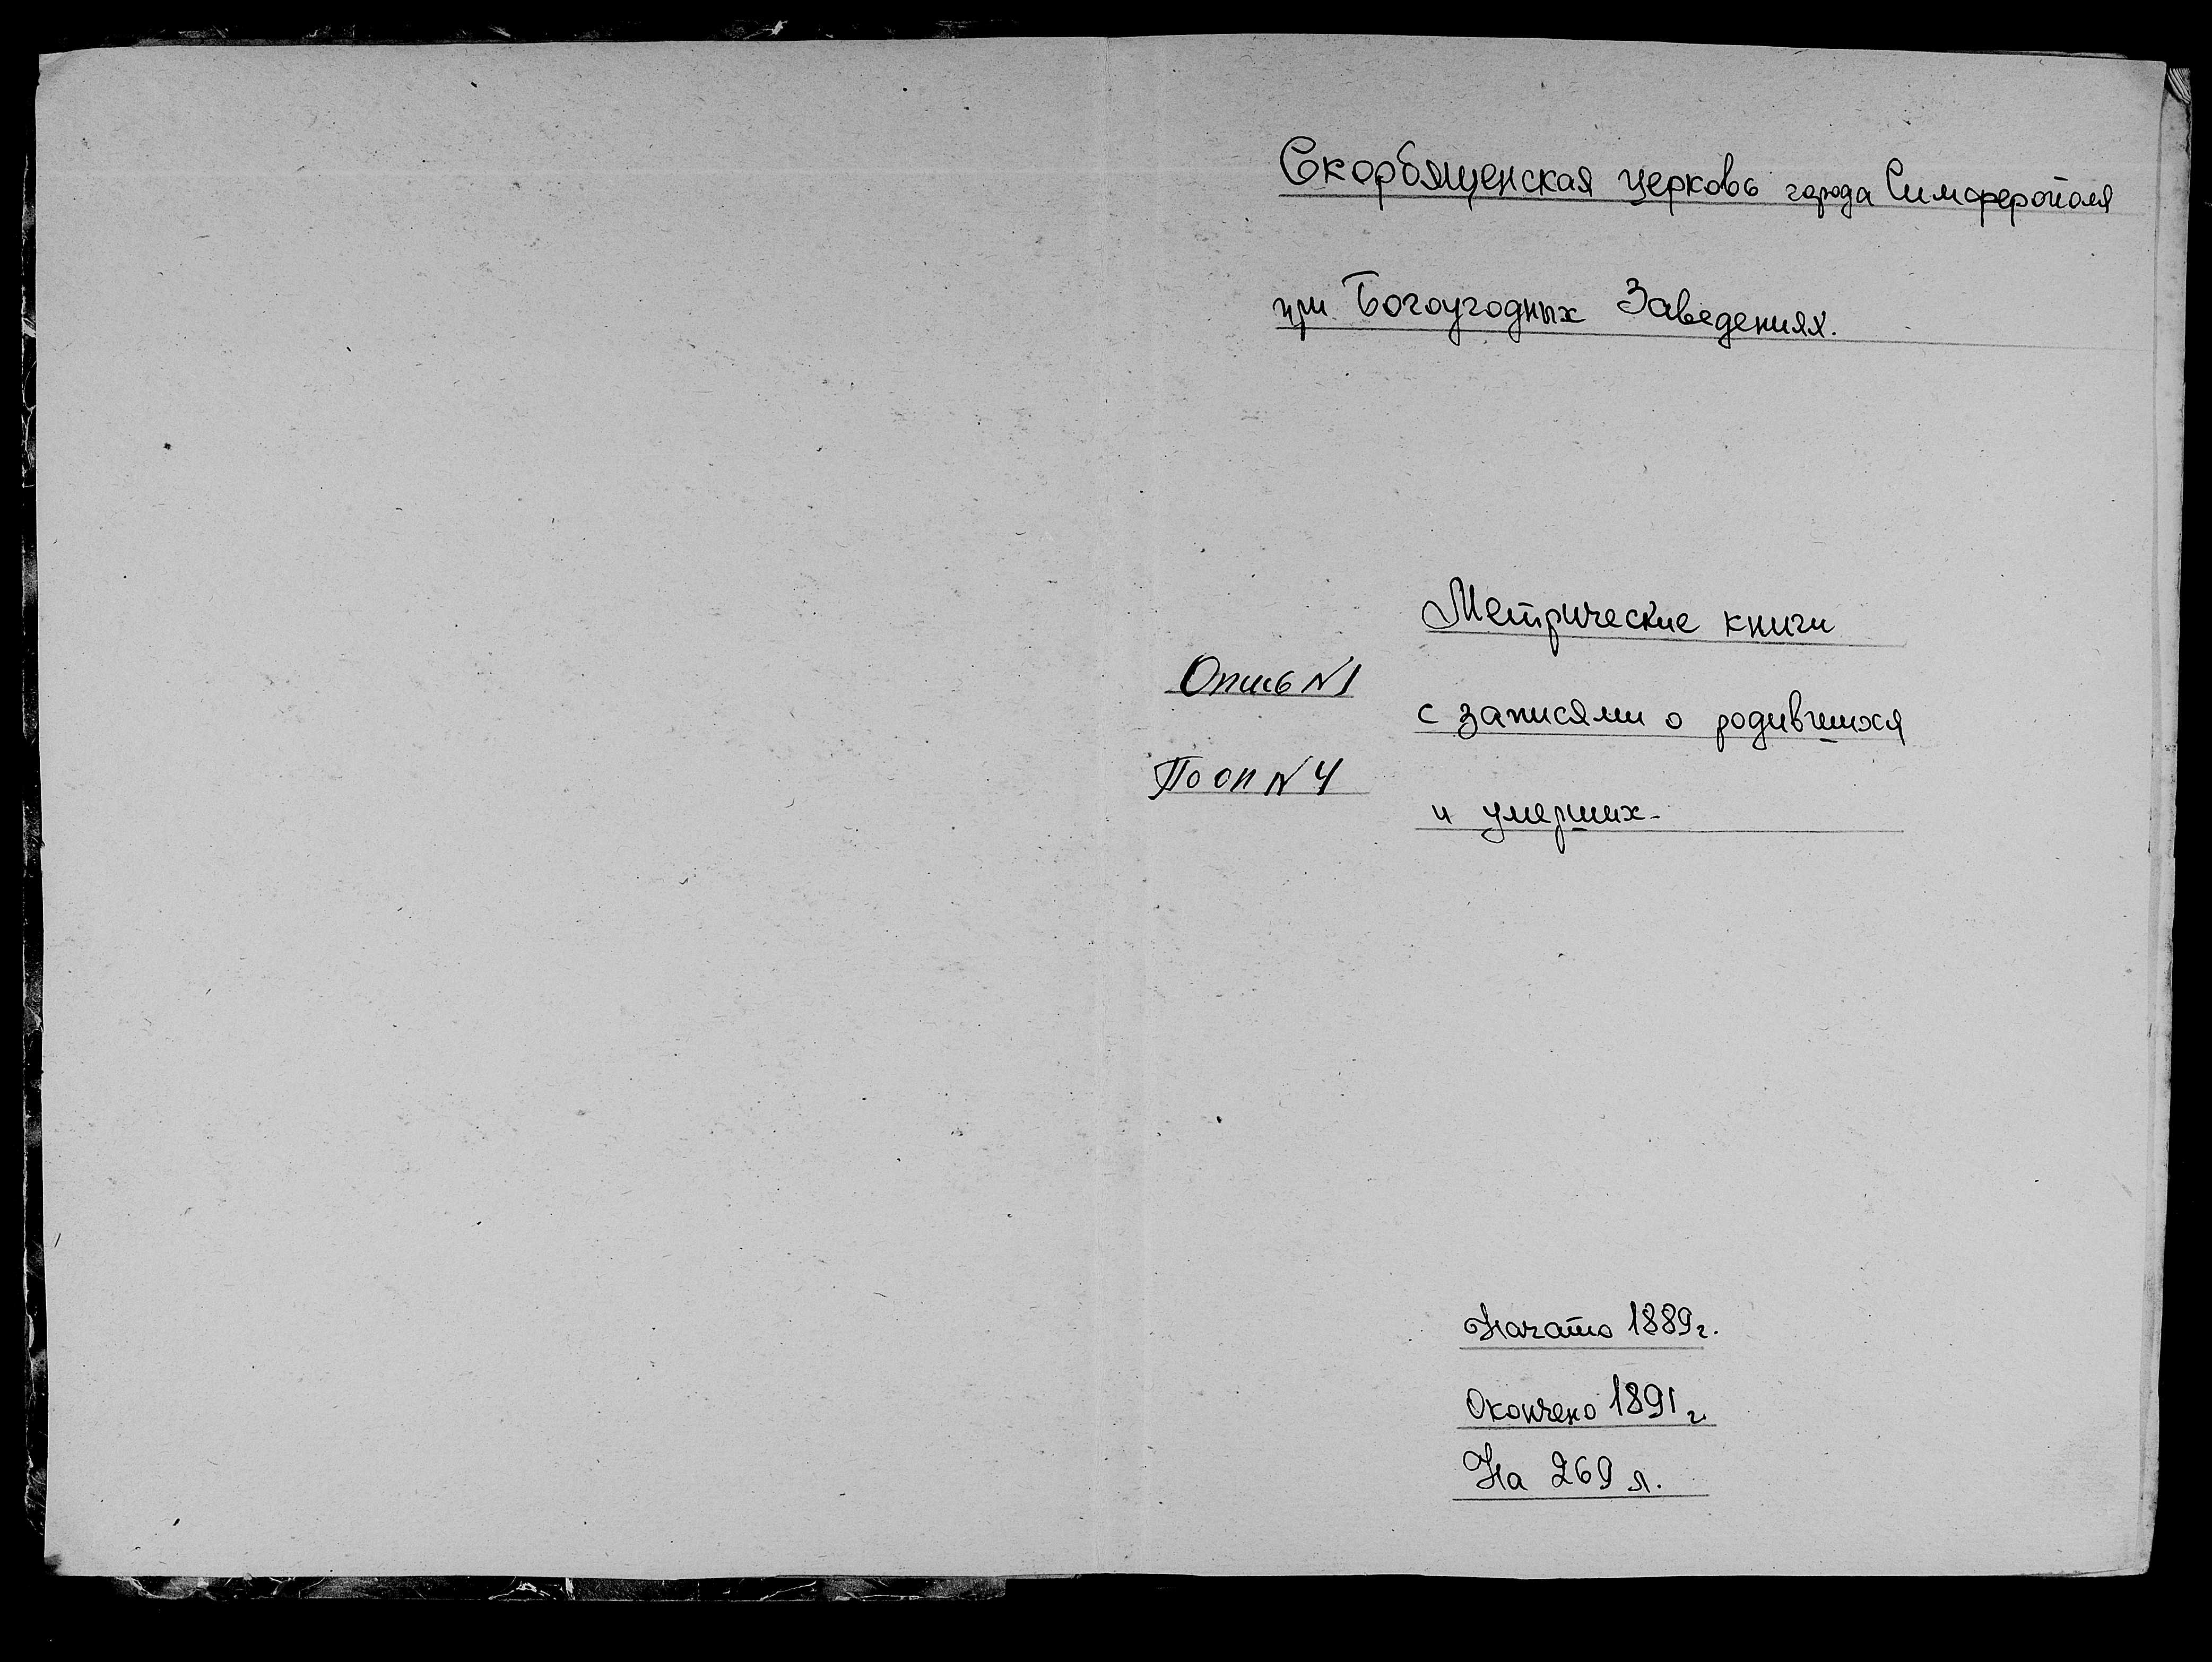 Скорбященская церковь города Симферополя
при Богоугодных Заведениях.
Метрические книги
Опись №1
с записями о родившихся
По оп №4
и умерших-
Начато 1889г.
Окончено 1891г.
На 269 л.